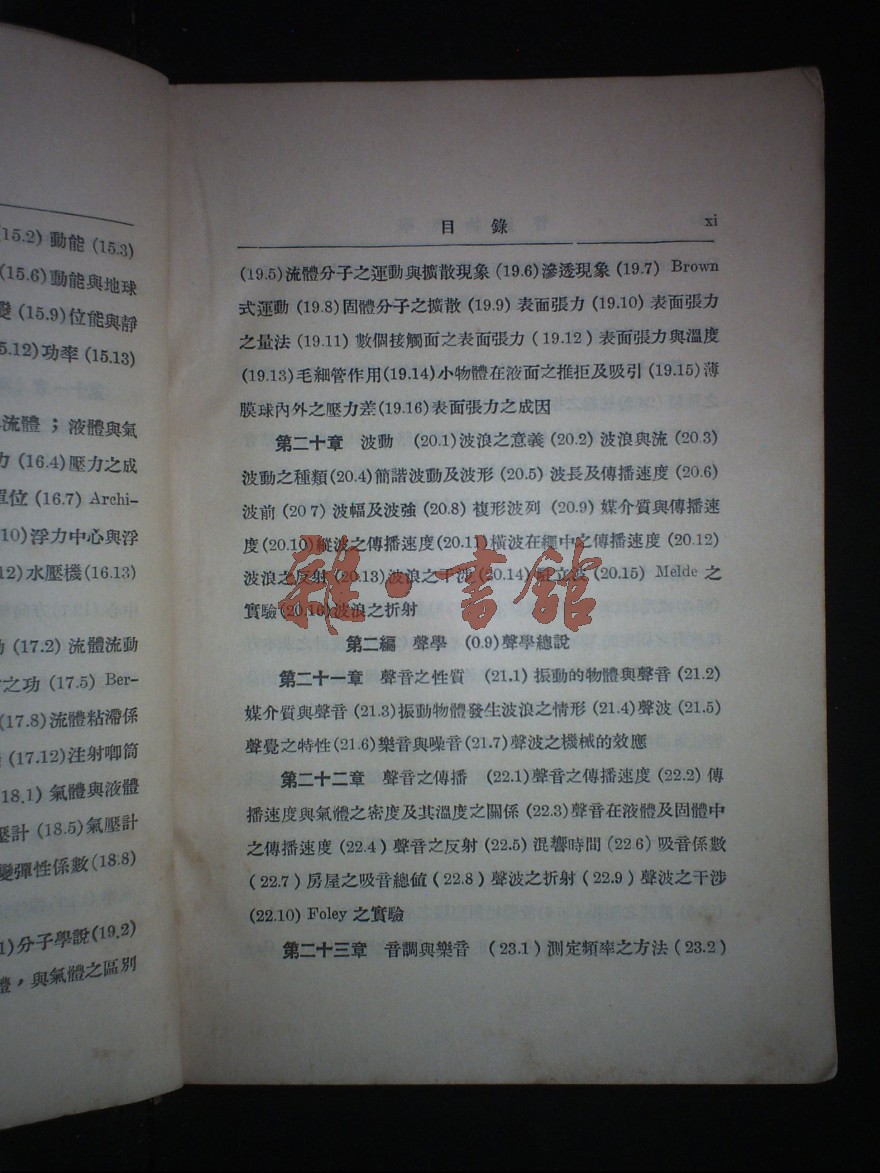 15.2) 動能 (15.3)
(15.6)動能與地球
(15.9)位能與靜
5.12)功率(15.13)
流體；液體與氣
力 (16.4)壓力之成
單位(16.7) Archi-
10)浮力中心與浮
12)水壓機(16.13)
(17.2) 流體流動
之功 (17.5) Ber-
(17.8)流體粘滯係
(17.12)注射唧筒
18.1) 氣體與液體
壓計(18.5)氣壓計
變彈性係數(18.8)
1)分子學說(19.2)
體，與氣體之區別
目錄 xi
(19.5)流體分子之運動與擴散現象(19.6)滲透現象(19.7) Brown
式運動(19.8)固體分子之擴散(19.9) 表面張力(19.10) 表面張力
之量法(19.11) 數個接觸面之表面張力(19.12) 表面張力與溫度
(19.13)毛細管作用(19.14)小物體在液面之推拒及吸引(19.15)薄
膜球內外之壓力差(19.16)表面張力之成因
第二十章 波動 (20.1)波浪之意義(20.2) 波浪與流(20.3)
波動之種類(20.4)簡諧波動及波形(20.5) 波長及傳播速度(20.6)
波前(20 7) 波幅及波強(20.8) 複形波列 (20.9) 媒介質與傳播速
度(20.10)縱波之傳播速度(20.11)橫波在繩中之傳播速度(20.12)
波浪之反射(20.13)波浪之干涉(20.14)駐立波(20.15) Melde 之
實驗(20.16)波浪之折射
第二編 聲學 (0.9)聲學總說
第二十一章 聲音之性質 (21.1)振動的物體與聲音(21.2)
媒介質與聲音(21.3)振動物體發生波浪之情形(21.4)聲波(21.5)
聲覺之特性(21.6)樂音與噪音(21.7)聲波之機械的效應
第二十二章 聲音之傳播 (22.1)聲音之傳播速度(22.2) 傳
播速度與氣體之密度及其溫度之關係(22.3)聲音在液體及固體中
之傳播速度(22.4)聲音之反射(22.5) 混響時間(22 6)吸音係數
(22.7) 房屋之吸音總值(22.8) 聲波之折射(22.9) 聲波之干涉
(22.10) Foley之實驗
第二十三章 音調與樂音 (23.1)測定頻率之方法(23.2)
雜·書館